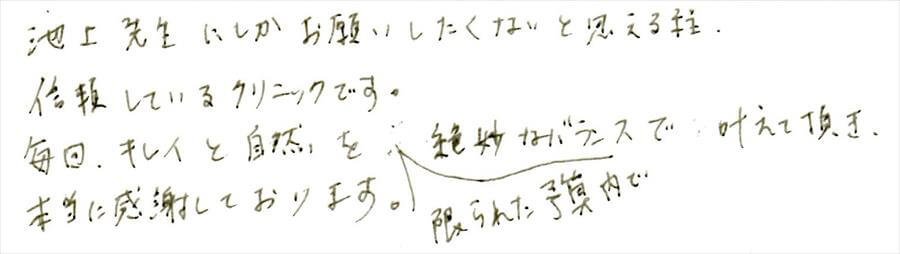 池上先生にしかお願いしたくないと思える程、
信頼しているクリニックです。
毎回、キレイと自然を絶妙なバランスで叶えて頂き、
限られた予算内で
本当に感謝しております。